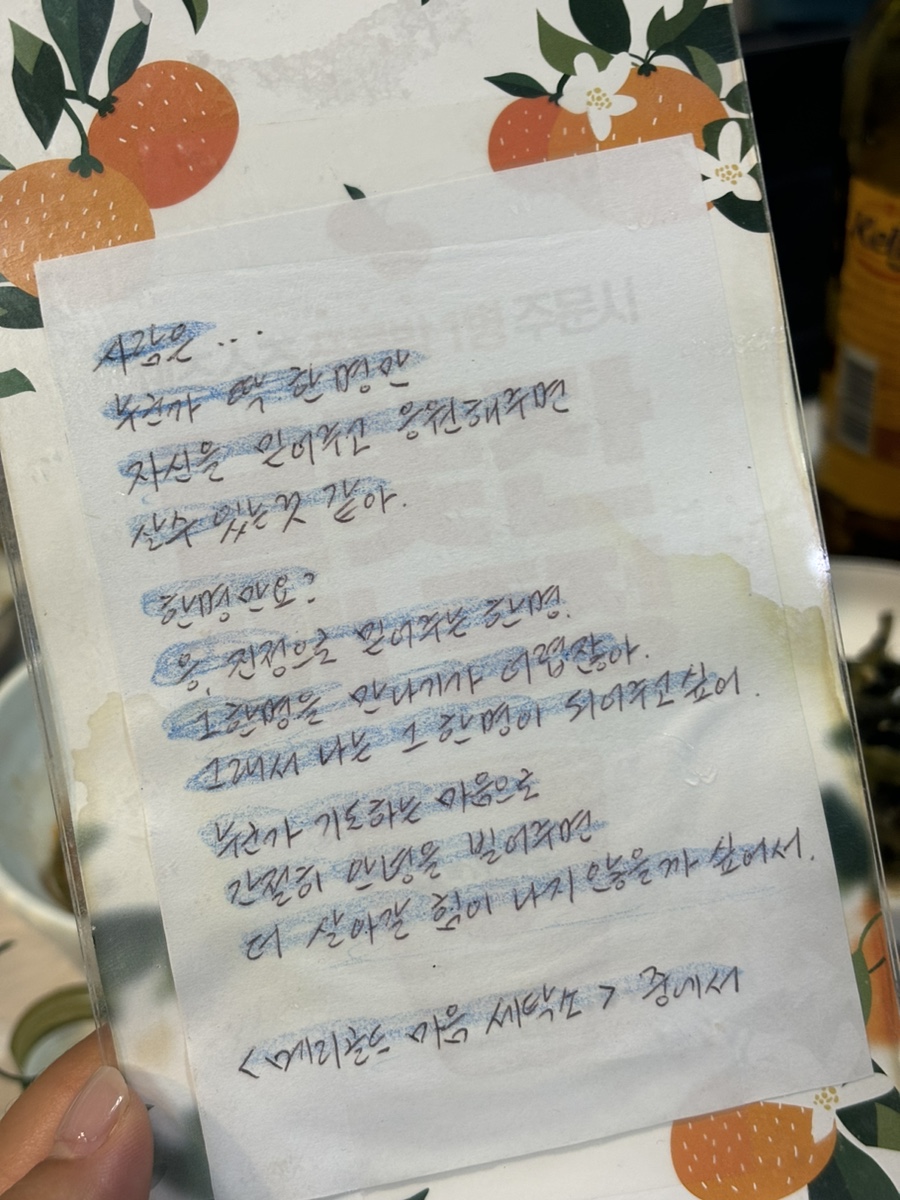 사람은 ...
누군가 딱 한명만
자신을 믿어주고 응원해주면
살수 있는것 같아.
한명만요?
응, 진정으로 믿어주는 한명.
그한명을 만나기가 어렵잖아.
그래서 나는 그 한명이 되어주고싶어.
누군가 기도하는 마음으로
간절히 안녕을 빌어주면
더 살아갈 힘이 나지 않을까 싶어서.
<메리골드 마음 세탁소> 중에서
Kelly